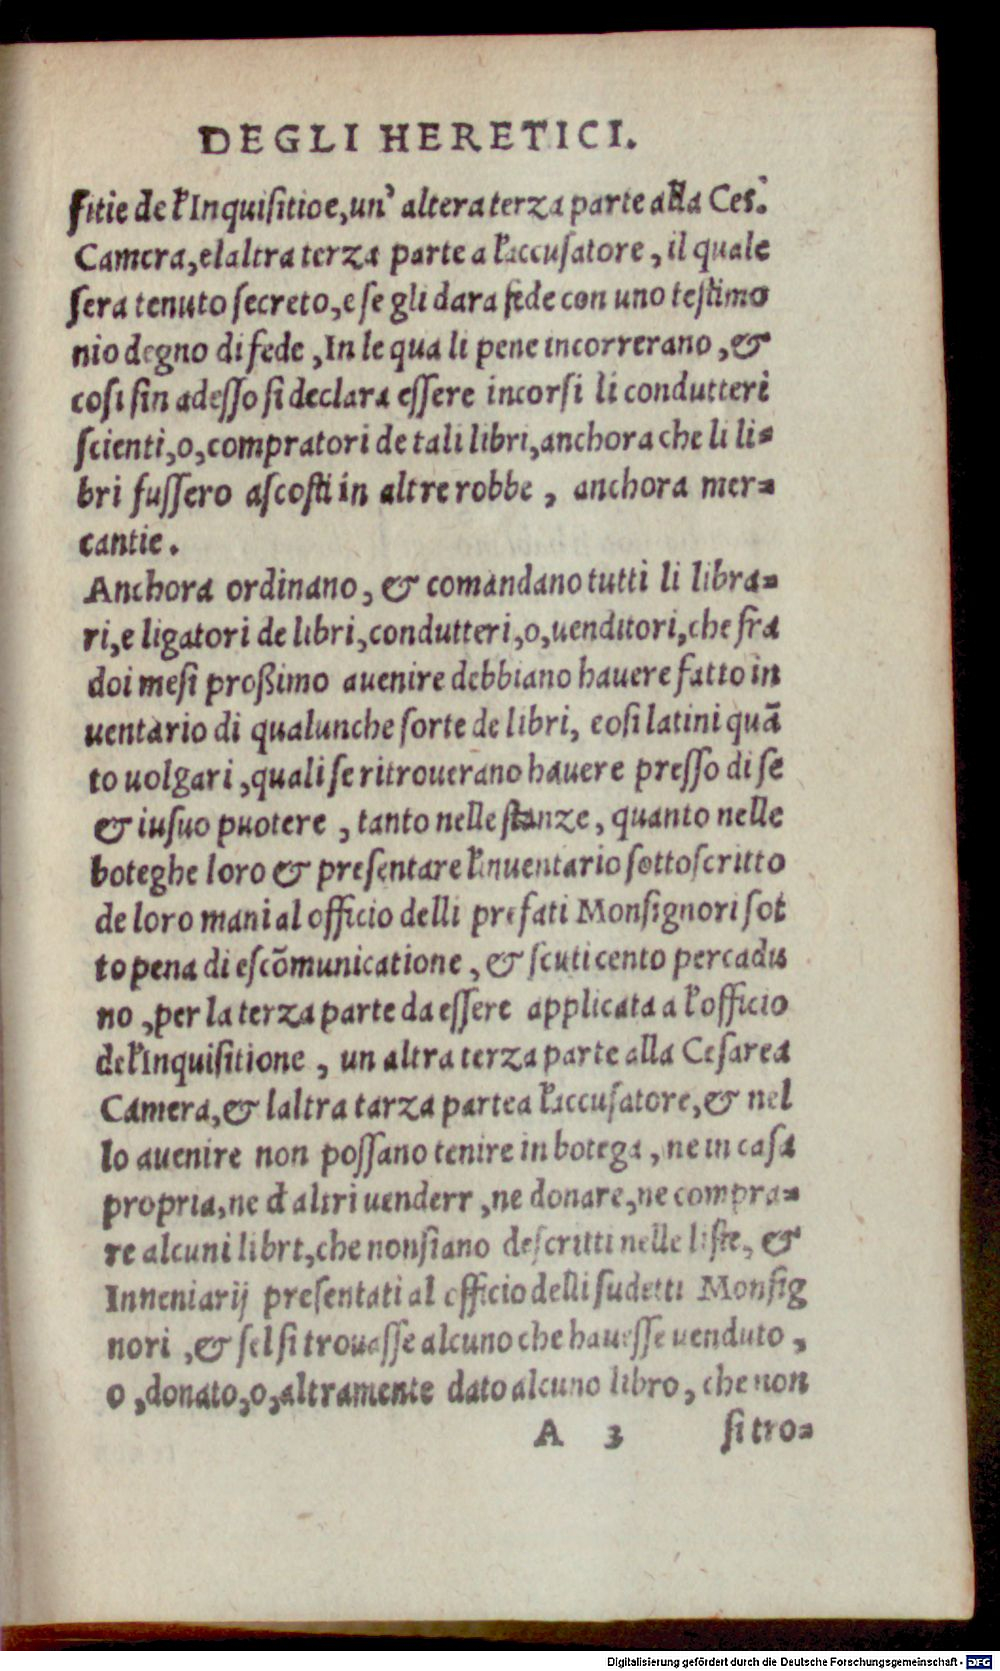 DEGLI HERETICI.
ſitie de l'Inquiſitioe, un' altera terza parte alla Ceſ.'
Camera, elaltra terza parte a l'accuſatore, il quale
ſera tenuto ſecreto, e ſe gli dara fede con uno teſtimo
nio degno di fede, In le qua li pene incorrerano, &
coſi ſin adeſſo ſi declara eſſere incorſi li condutteri
ſcienti, o, compratori de tali libri, anchora che li li-
bri fuſſero aſcoſti in altre robbe, anchora mer-
cantie.
Anchora ordinano, & comandano tutti li libra-
ri, e ligatori de libri, condutteri, o, uenditori, che fra
doi meſi proßimo auenire debbiano hauere fatto in
uentario di qualunche ſorte de libri, coſi latini quā
to uolgari, quali ſe ritrouerano hauere preſſo di ſe
& iuſuo puotere, tanto nelle ſtanze, quanto nelle
boteghe loro & preſentare l'inuentario ſottoſcritto
de loro mani al officio delli prefati Monſignori ſot
to pena di eſcōmunicatione, & ſcuti cento per cadu
no, per la terza parte da eſſere applicata a l'officio
del'Inquiſitione, un altra terza parte alla Ceſarea
Camera, & laltra tarza parte a l'accuſatore, & nel
lo auenire non poſſano tenire in botega, ne in caſa
propria, ne d'altri uenderr, ne donare, ne compra-
re alcuni librt, che nonſiano deſcritti nelle liſte, &
Inneniarij preſentati al officio delli ſudetti Monſig
nori, & ſelſi trouaſſe alcuno che haueſſe uenduto,
o, donato, o, altramente dato alcuno libro, che non
A 3 ſi tro-
Digitalisierung gefördert durch die Deutsche Forschungsgemeinschaft - DFG